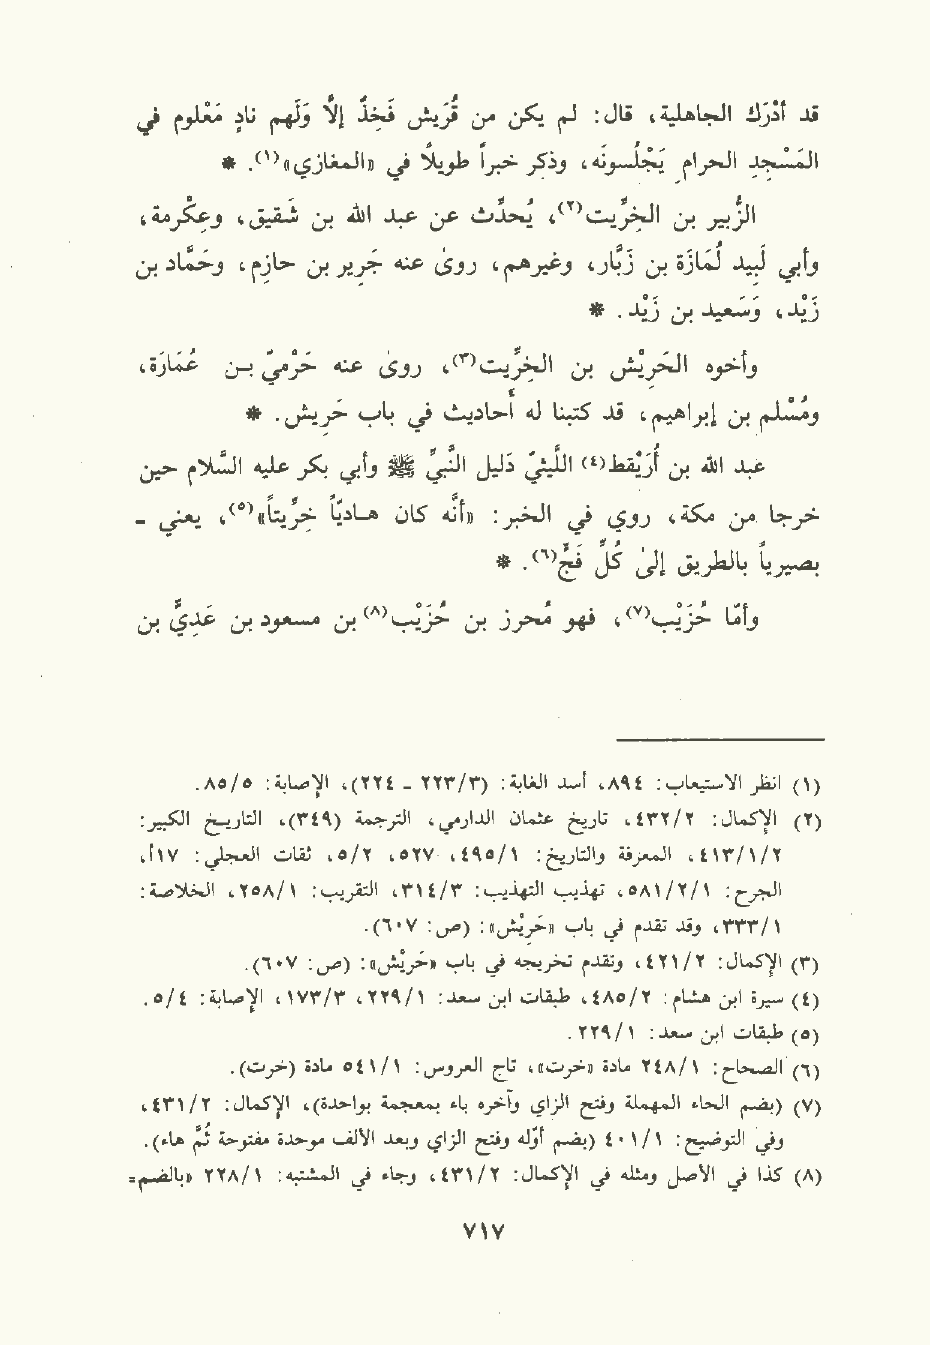 قد أدْرَك الجاهلية، قال: لم يكن من قُرَيش فَخذٌ إلاّ وَلَهم نادٍ مَعْلوم في
المَسْجِدِ الحرامِ يَجْلُسونَه، وذكر خبراً طويلاً في «المغازي»(١). *
الزُّبير بن الخِرِّيت(٢)، يُحدِّث عن عبد الله بن شَقيق، وعِكْرمة،
وأبي لَبِيد لُمَازَة بن زَبَّار، وغيرهم، روىٰ عنه جَرِير بن حازم، وحَمَّاد بن
زَيْد، وسَعيد بن زَيْد. *
وأخوه الحَرِيْش بن الخِرِّيت(٣)، روىٰ عنه حَرْميّ بن عُمَارَة،
ومُسْلم بن إبراهيم، قد كتبنا له أحاديث في باب حَرِيش. *
عبد الله بن أُرَيْقط(٤) اللَّيثيّ دَليل النَّبيِّ ﷺ وأبي بكر عليه السَّلام حين
خرجا من مكة، روي في الخبر: «أنَّه كان هادياً خِرِّيتاً»(٥)، يعني -
بصيراً بالطريق إلىٰ كُلِّ فَجٍّ(٦). *
وأمّا حُزَيْب(٧)، فهو مُحرز بن حُزَيْب(٨) بن مسعود بن عَدِيٍّ بن
(١) انظر الاستيعاب: ٨٩٤، أسد الغابة: (٢٢٣/٣ - ٢٢٤)، الإصابة: ٨٥/٥.
(٢) الإكمال: ٤٣٢/٢، تاريخ عثمان الدارمي، الترجمة (٣٤٩)، التاريخ الكبير:
٤١٣/١/٢، المعرفة والتاريخ: ٤٩٥/١، ٥٢٧، ٥/٢، ثقات العجلي: ١٧أ،
الجرح: ٥٨١/٢/١، تهذيب التهذيب: ٣١٤/٣، التقريب: ٢٥٨/١، الخلاصة:
٣٣٣/١، وقد تقدم في باب «خَرِيْش»: (ص: ٦٠٧).
(٣) الإكمال: ٤٢١/٢، وتقدم تخريجه في باب «خَرِيْش»: (ص: ٦٠٧).
(٤) سيرة ابن هشام: ٤٨٥/٢، طبقات ابن سعد: ٢٢٩/١، ١٧٣/٣، الإصابة: ٥/٤.
(٥) طبقات ابن سعد: ٢٢٩/١.
(٦) الصحاح: ٢٤٨/١ مادة «خرت»، تاج العروس: ٥٤١/١ مادة (خرت).
(٧) (بضم الحاء المهملة وفتح الزاي وآخره باء بمعجمة بواحدة)، الإكمال: ٤٣١/٢،
وفي التوضيح: ٤٠١/١ (بضم أوله وفتح الزاي وبعد الألف موحدة مفتوحة ثُمَّ هاء).
(٨) كذا في الأصل ومثله في الإكمال: ٤٣١/٢، وجاء في المشتبه: ٢٢٨/١ «بالضم=
٧١٧